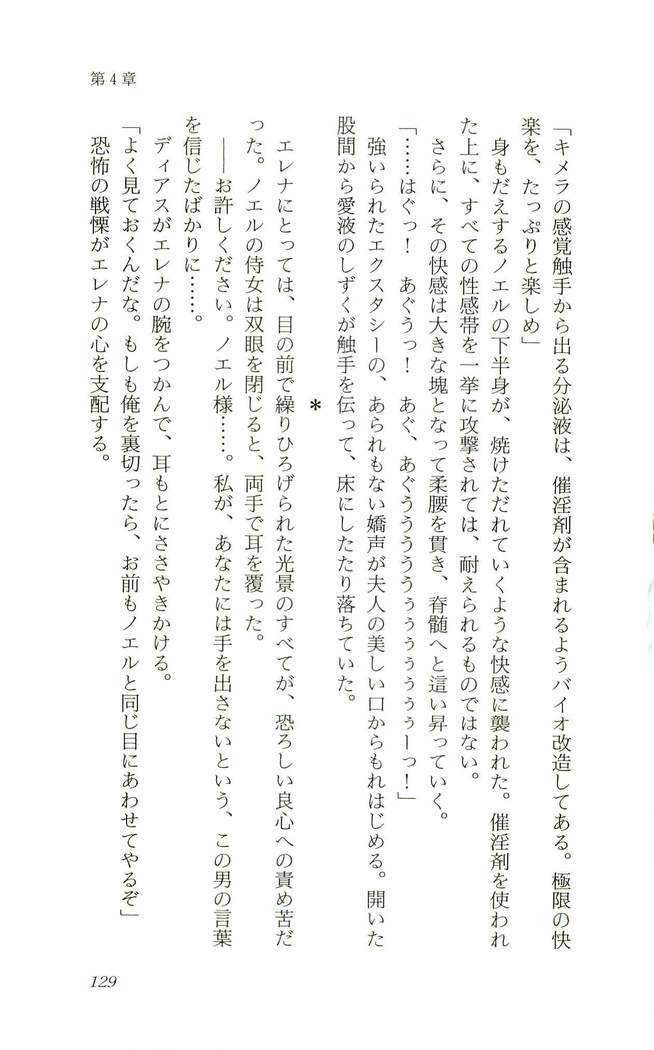 第4章
「キメラの感覚触手から出る分泌液は、催淫剤が含まれるようバイオ改造してある。極限の快
楽を、たっぷりと楽しめ」
身もだえするノエルの下半身が、焼けただれていくような快感に襲われた。催淫剤を使われ
た上に、すべての性感帯を一挙に攻撃されては、耐えられるものではない。
さらに、その快感は大きな塊となって柔腰を貫き、脊髄へと這い昇っていく。
「……はぐっ！　あぐうっ！　あぐ、あぐうううううぅぅぅぅぅぅーっ！」
強いられたエクスタシーの、あられもない嬌声が夫人の美しい口からもれはじめる。開いた
股間から愛液のしずくが触手を伝って、床にしたたり落ちていた。
＊
エレナにとっては、目の前で繰りひろげられた光景のすべてが、恐ろしい良心への責め苦だ
った。ノエルの侍女は双眼を閉じると、両手で耳を覆った。
――お許しください。ノエル様……。私が、あなたには手を出さないという、この男の言葉
を信じたばかりに……。
ディアスがエレナの腕をつかんで、耳もとにささやきかける。
「よく見ておくんだな。もしも俺を裏切ったら、お前もノエルと同じ目にあわせてやるぞ」
恐怖の戦慄がエレナの心を支配する。
129